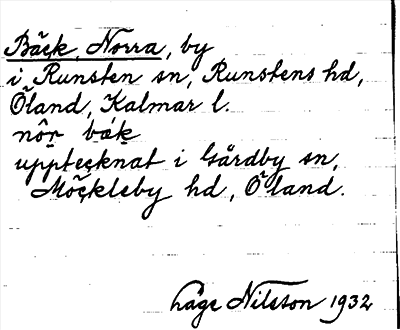 Bäck, Norra, by
i Runsten sn, Runstens hd,
Öland, Kalmar l.
nôr bák
upptecknat i Gårdby sn,
Möckleby hd, Öland.
Låge Nilsson 1932